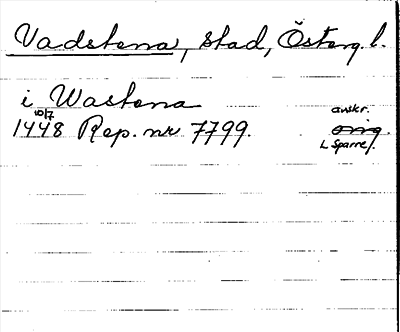 Vadstena, stad, Österg. l.
i Wastena
10/7
1448 Rep. nr 7799.
avskr.
orig.
L Sparre/.